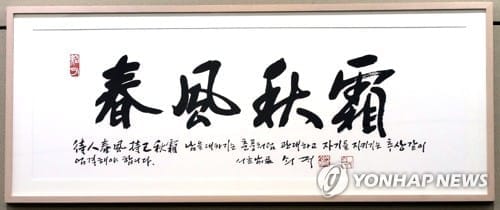 春風秋霜
待人春風 持己秋霜 남을 대하기는 춘풍처럼 관대하고 자기를 지키기는 추상같이
엄격해야 합니다.
YONHAP NEWS